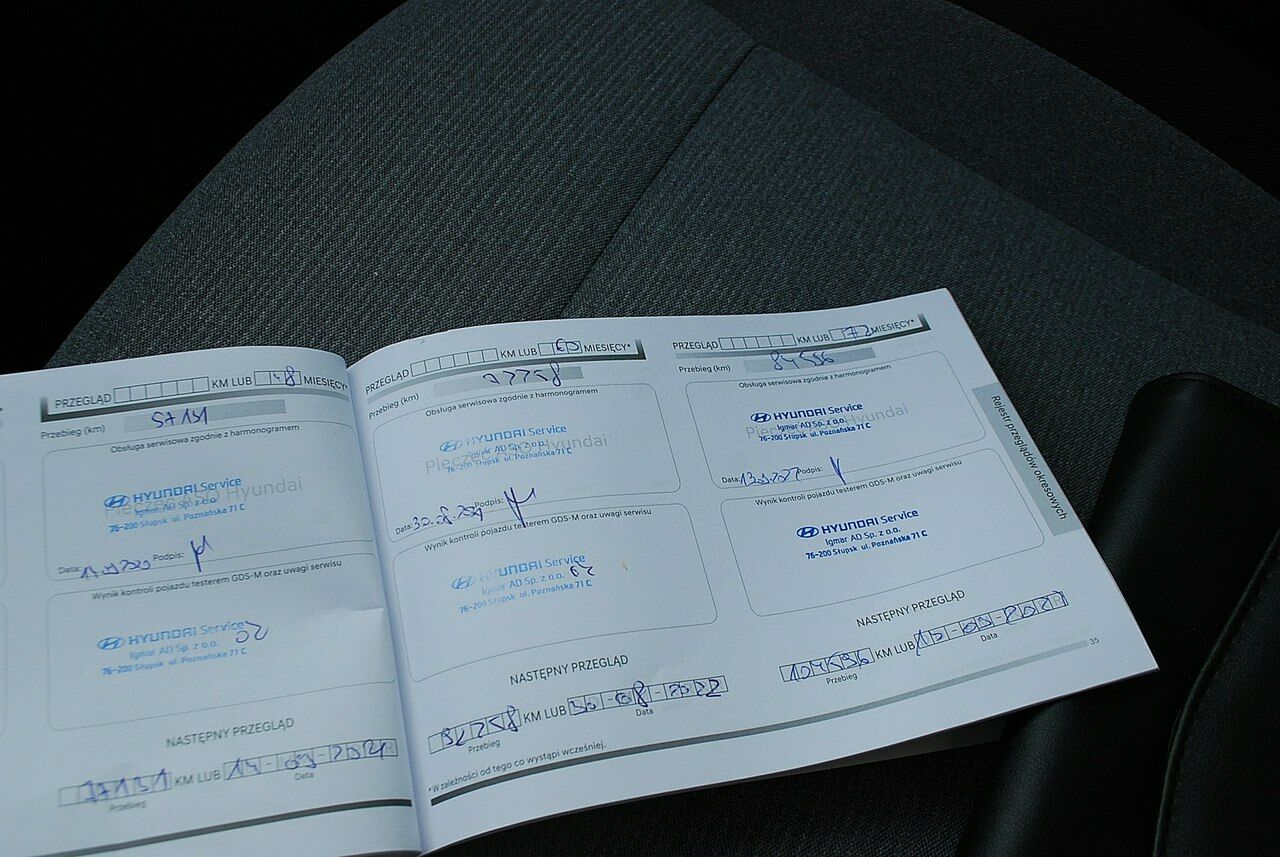 PRZEGLĄD KM LUB 48 MIESIĘCY*
Przebieg (km) 57151
Obsługa serwisowa zgodnie z harmonogramem
Pieczęć ASO Hyundai
HYUNDAI Service
Igmar AD Sp. z o.o.
76-200 Słupsk ul. Poznańska 71 C
Data: Podpis:
Wynik kontroli pojazdu testerem GDS-M oraz uwagi serwisu
HYUNDAI Service
Igmar AD Sp. z o.o.
76-200 Słupsk ul. Poznańska 71 C
NASTĘPNY PRZEGLĄD
KM LUB
Przebieg Data
PRZEGLĄD KM LUB 60 MIESIĘCY*
Przebieg (km)
Obsługa serwisowa zgodnie z harmonogramem
Pieczęć ASO Hyundai
HYUNDAI Service
Igmar AD Sp. z o.o.
76-200 Słupsk ul. Poznańska 71 C
Data: Podpis:
Wynik kontroli pojazdu testerem GDS-M oraz uwagi serwisu
HYUNDAI Service
Igmar AD Sp. z o.o.
76-200 Słupsk ul. Poznańska 71 C
NASTĘPNY PRZEGLĄD
KM LUB 30-08-2022
Przebieg Data
*W zależności od tego co wystąpi wcześniej.
PRZEGLĄD KM LUB 72 MIESIĘCY*
Przebieg (km)
Obsługa serwisowa zgodnie z harmonogramem
Pieczęć ASO Hyundai
HYUNDAI Service
Igmar AD Sp. z o.o.
76-200 Słupsk ul. Poznańska 71 C
Data: Podpis:
Wynik kontroli pojazdu testerem GDS-M oraz uwagi serwisu
HYUNDAI Service
Igmar AD Sp. z o.o.
76-200 Słupsk ul. Poznańska 71 C
NASTĘPNY PRZEGLĄD
KM LUB
Przebieg Data
35
Rejestr przeglądów okresowych